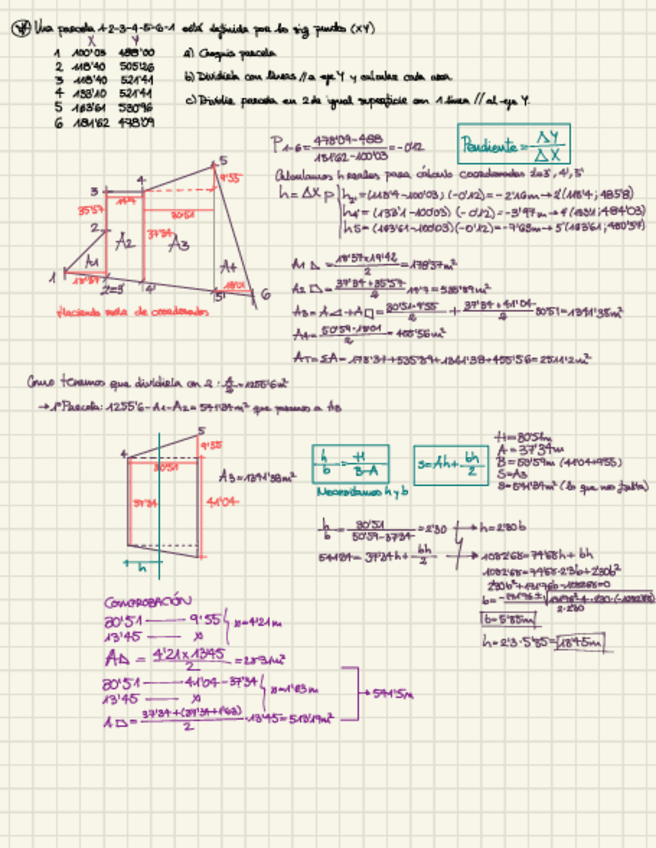 Una parcela 1-2-3-4-5-6-1 está definida por los sig puntos (XY)
X Y
1 100'03 488'00
2 118'40 505'26
3 118'40 521'41
4 133'10 521'41
5 163'61 530'96
6 181'62 478'09
a) Croquis parcela
b) Dividirla con líneas // a eje Y y calcular cada area
c) Dividir parcela en 2 de igual superficie con 1 línea // al eje Y.
P1-6 = 478'09-488 / 181'62-100'03 = -0'12
Pendiente = ΔY / ΔX
Calculamos h reales para cálculo coordenadas 2=3', 4', 5'
h = ΔX · p
h2 = (118'4-100'03) · (-0'12) = -2'16m → 2'(118'4; 485'8)
h4 = (133'1-100'03) (-0'12) = -3'97m → 4'(133'1; 484'03)
h5 = (163'61-100'03) (-0'12) = -7'63m → 5'(163'61; 480'37)
1 2 3 4 5 6
2=3' 4' 5'
A1 A2 A3 A4
35'57
14'7
30'51
37'34
9'55
18'37
18'01
Haciendo resta de coordenadas
A1 = 18'37·19'42 / 2 = 178'37m²
A2 = 37'34+35'57 / 2 · 14'7 = 535'89m²
A3 = A + A = 30'51·9'55 / 2 + 37'34+41'04 / 2 · 30'51 = 1341'38m²
A4 = 50'59·18'01 / 2 = 455'56m²
AT = ΣA = 178'37+535'89+1341'38+455'56 = 2511'2m²
Como tenemos que dividirla en 2: A/2 = 1255'6m²
→ 1ª Parcela: 1255'6-A1-A2 = 541'34m² que pasamos a A3
4 5
9'55
30'51
37'34
41'04
h
A3 = 1341'38m²
h / b = H / B-A
S = Ah + bh / 2
Necesitamos h y b
H = 30'51m
A = 37'34m
B = 50'59m (41'04+9'55)
S = A3
S = 541'34m² (lo que nos falta)
h / b = 30'51 / 50'59-37'34 = 2'30 → h = 2'30b
541'34 = 37'34h + bh / 2
→ 1082'68 = 74'68h + bh
1082'68 = 74'68·2'3b + 2'30b²
b = 5'85m
h = 2'3·5'85 = 13'45m
COMPROBACIÓN
30'51 — 9'55
13'45 — x
x = 4'21m
A = 4'21·13'45 / 2 = 28'31m²
30'51 — 41'04-37'34
13'45 — x
x = 1'63m
A = 37'34+(37'34+1'63) / 2 · 13'45 = 513'19m²
→ 541'5m